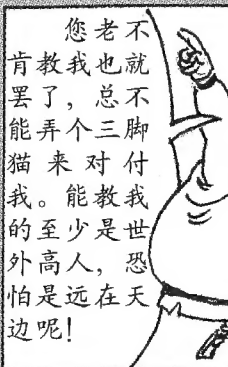 您老不
肯教我也就
罢了，总不
能弄个三脚
猫来对付
我。能教我
的至少是世
外高人，恐
怕是远在天
边呢！